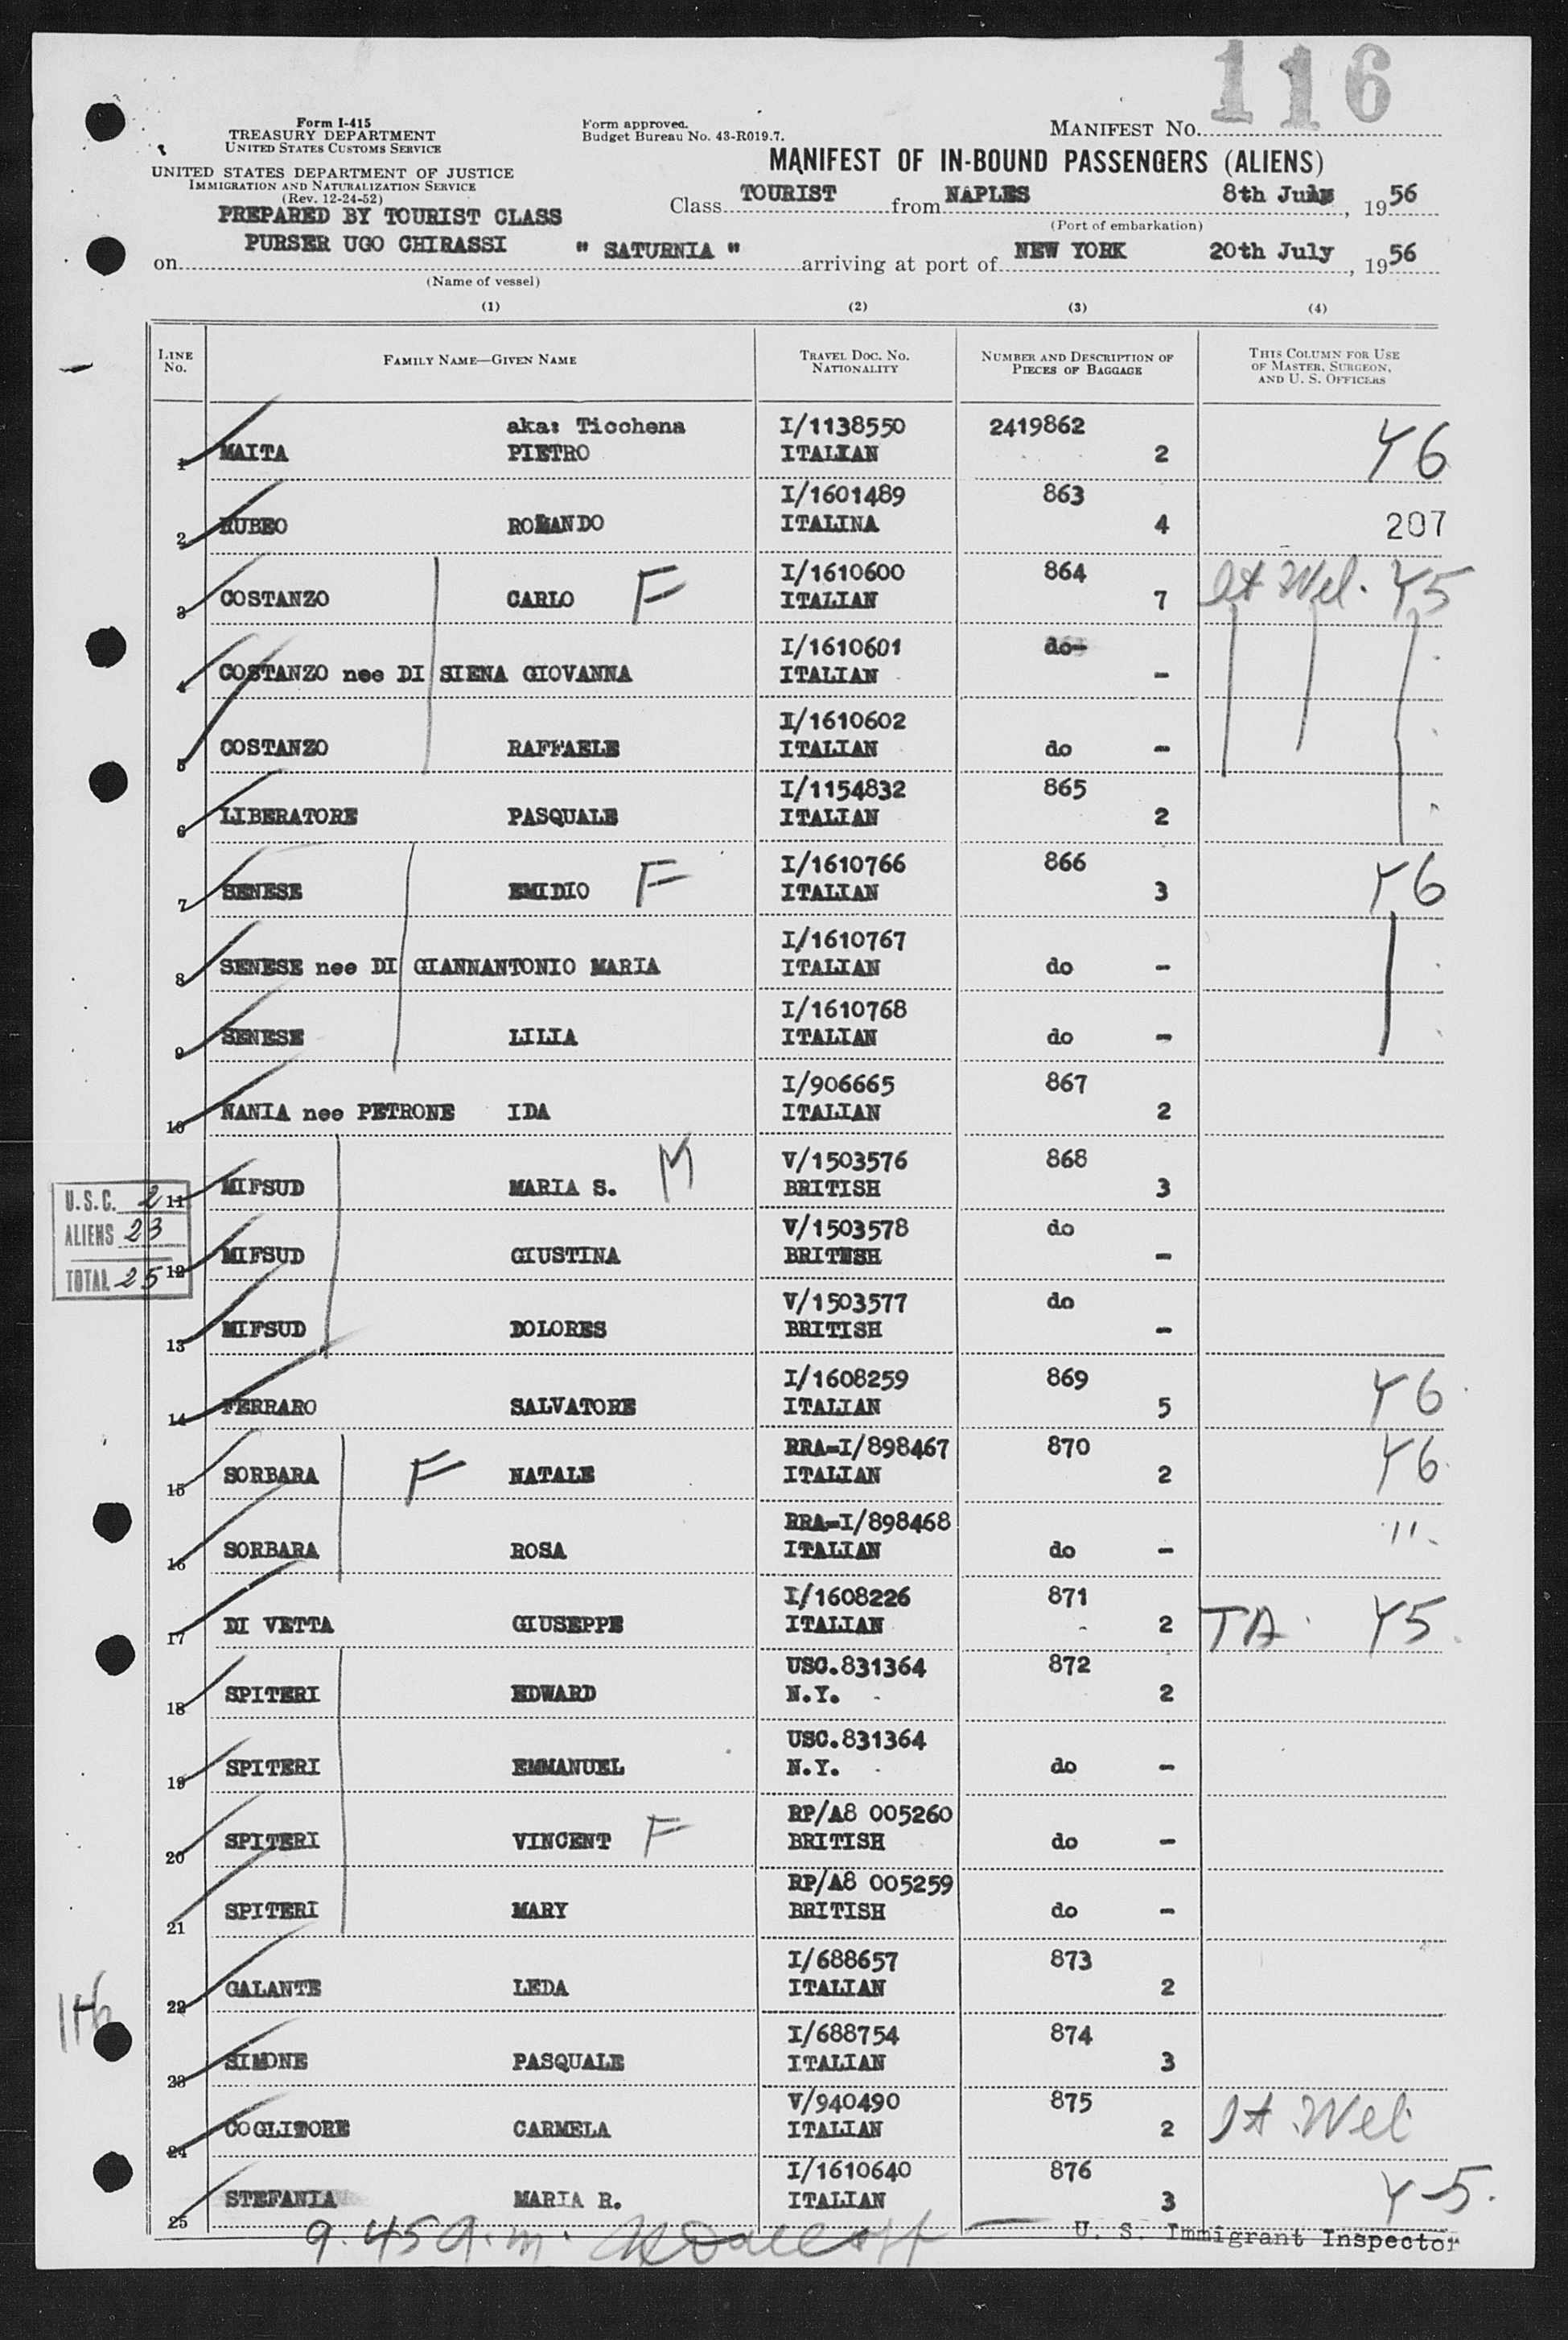 116
Form I-415
TREASURY DEPARTMENT
UNITED STATES CUSTOMS SERVICE
Form approved.
Budget Bureau No. 43-R019.7.
MANIFEST No.
UNITED STATES DEPARTMENT OF JUSTICE
IMMIGRATION AND NATURALIZATION SERVICE
(Rev. 12-24-52)
MANIFEST OF IN-BOUND PASSENGERS (ALIENS)
PREPARED BY TOURIST CLASS
PURSER UGO CHIRASSI
Class TOURIST from NAPLES 8th July, 1956
(Port of embarkation)
on " SATURNIA " arriving at port of NEW YORK 20th July, 1956
(Name of vessel)
(1) (2) (3) (4)
LINE No. FAMILY NAME—GIVEN NAME TRAVEL DOC. NO. NATIONALITY NUMBER AND DESCRIPTION OF PIECES OF BAGGAGE THIS COLUMN FOR USE OF MASTER, SURGEON, AND U. S. OFFICERS
aka: Ticchena I/1138550 2419862
1 MAITA PIETRO ITALIAN 2 Y6
I/1601489 863
2 RUBEO ROMANDO ITALINA 4 207
I/1610600 864
3 COSTANZO CARLO F ITALIAN 7 It Wel. Y5
I/1610601 do-
4 COSTANZO nee DI SIENA GIOVANNA ITALIAN -
I/1610602
5 COSTANZO RAFFAELE ITALIAN do -
I/1154832 865
6 LIBERATORE PASQUALE ITALIAN 2
I/1610766 866
7 SENESE EMIDIO F ITALIAN 3 Y6
I/1610767
8 SENESE nee DI GIANNANTONIO MARIA ITALIAN do -
I/1610768
9 SENESE LILIA ITALIAN do -
I/906665 867
10 NANIA nee PETRONE IDA ITALIAN 2
V/1503576 868
11 MIFSUD MARIA S. M BRITISH 3
V/1503578 do
12 MIFSUD GIUSTINA BRITESH -
V/1503577 do
13 MIFSUD DOLORES BRITISH -
U.S.C. 2
ALIENS 23
TOTAL 25
I/1608259 869
14 FERRARO SALVATORE ITALIAN 5 Y6
RRA-I/898467 870
15 SORBARA F NATALE ITALIAN 2 Y6
RRA-I/898468
16 SORBARA ROSA ITALIAN do - "
I/1608226 871
17 DI VETTA GIUSEPPE ITALIAN 2 TA. Y5
USC.831364 872
18 SPITERI EDWARD N.Y. 2
USC.831364
19 SPITERI EMMANUEL N.Y. do -
RP/A8 005260
20 SPITERI VINCENT F BRITISH do -
RP/A8 005259
21 SPITERI MARY BRITISH do -
I/688657 873
22 GALANTE LEDA ITALIAN 2
I/688754 874
23 SIMONE PASQUALE ITALIAN 3
V/940490 875
24 COGLITORE CARMELA ITALIAN 2 It Wel
I/1610640 876
25 STEFANIA MARIA R. ITALIAN 3 Y-5.
116
9.45 a.m. U. S. Immigrant Inspector